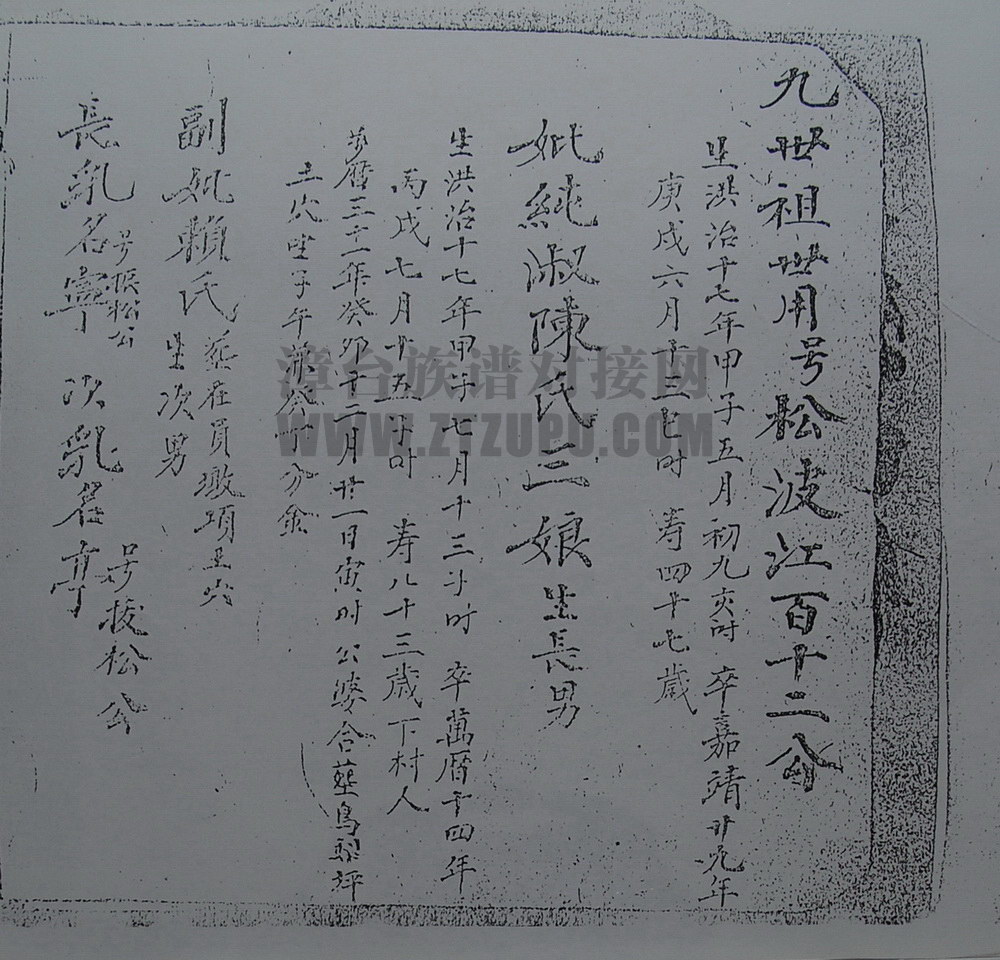 九世祖世用号松波江百十二公
生洪治十七年甲子五月初九亥时 卒嘉靖廿九年
庚戌六月十三 时 寿四十七歲
妣純淑陳氏三娘生長男
生洪治十七年甲子七月十三 时 卒萬曆十四年
丙戌七月十五子时 寿八十三歲下村人
萬曆三十一年癸卯十二月廿一日寅时公婆合葬鳥 坪
土穴坐子午兼癸丁分金
副妣賴氏
葬在員墩項土穴
生次男
長乳名寧
号振松公
次乳名亨
号 松公
漳台族谱对接网
WWW.ZTZUPU.COM